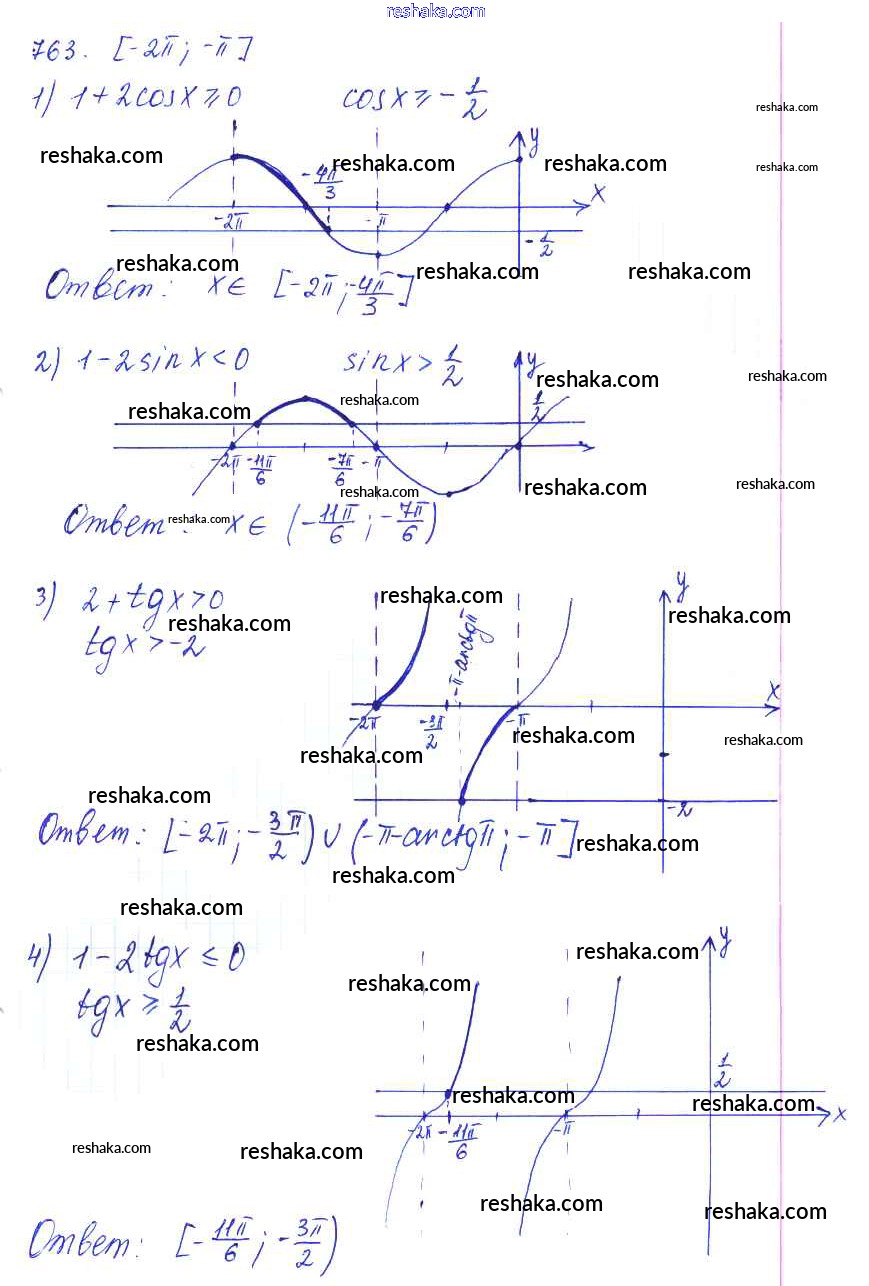 reshaka.com
763. [-2π; -π]
1) 1+2cosx ≥ 0 cosx ≥ -1/2
reshaka.com
y
reshaka.com
reshaka.com reshaka.com reshaka.com
-4π/3
x
-2π -π
-1/2
reshaka.com reshaka.com reshaka.com
Ответ: x∈ [-2π; -4π/3]
2) 1-2sinx<0 sinx > 1/2
y
reshaka.com reshaka.com
reshaka.com reshaka.com 1/2
-2π -11π/6 -7π/6 -π
reshaka.com reshaka.com reshaka.com
Ответ: reshaka.com x∈ (-11π/6; -7π/6)
3) 2+tgx>0
reshaka.com y
reshaka.com reshaka.com
tgx>-2
-π-arctgπ
x
-2π -3π/2 -π
reshaka.com reshaka.com
reshaka.com
reshaka.com
-2
Ответ: [-2π; -3π/2) ∪ (-π-arctgπ; -π]
reshaka.com
reshaka.com
reshaka.com
4) 1-2tgx ≤ 0
y
reshaka.com
reshaka.com
tgx ≥ 1/2
reshaka.com
1/2
reshaka.com reshaka.com
x
-2π -11π/6 -π
reshaka.com reshaka.com
reshaka.com reshaka.com
Ответ: [-11π/6; -3π/2)